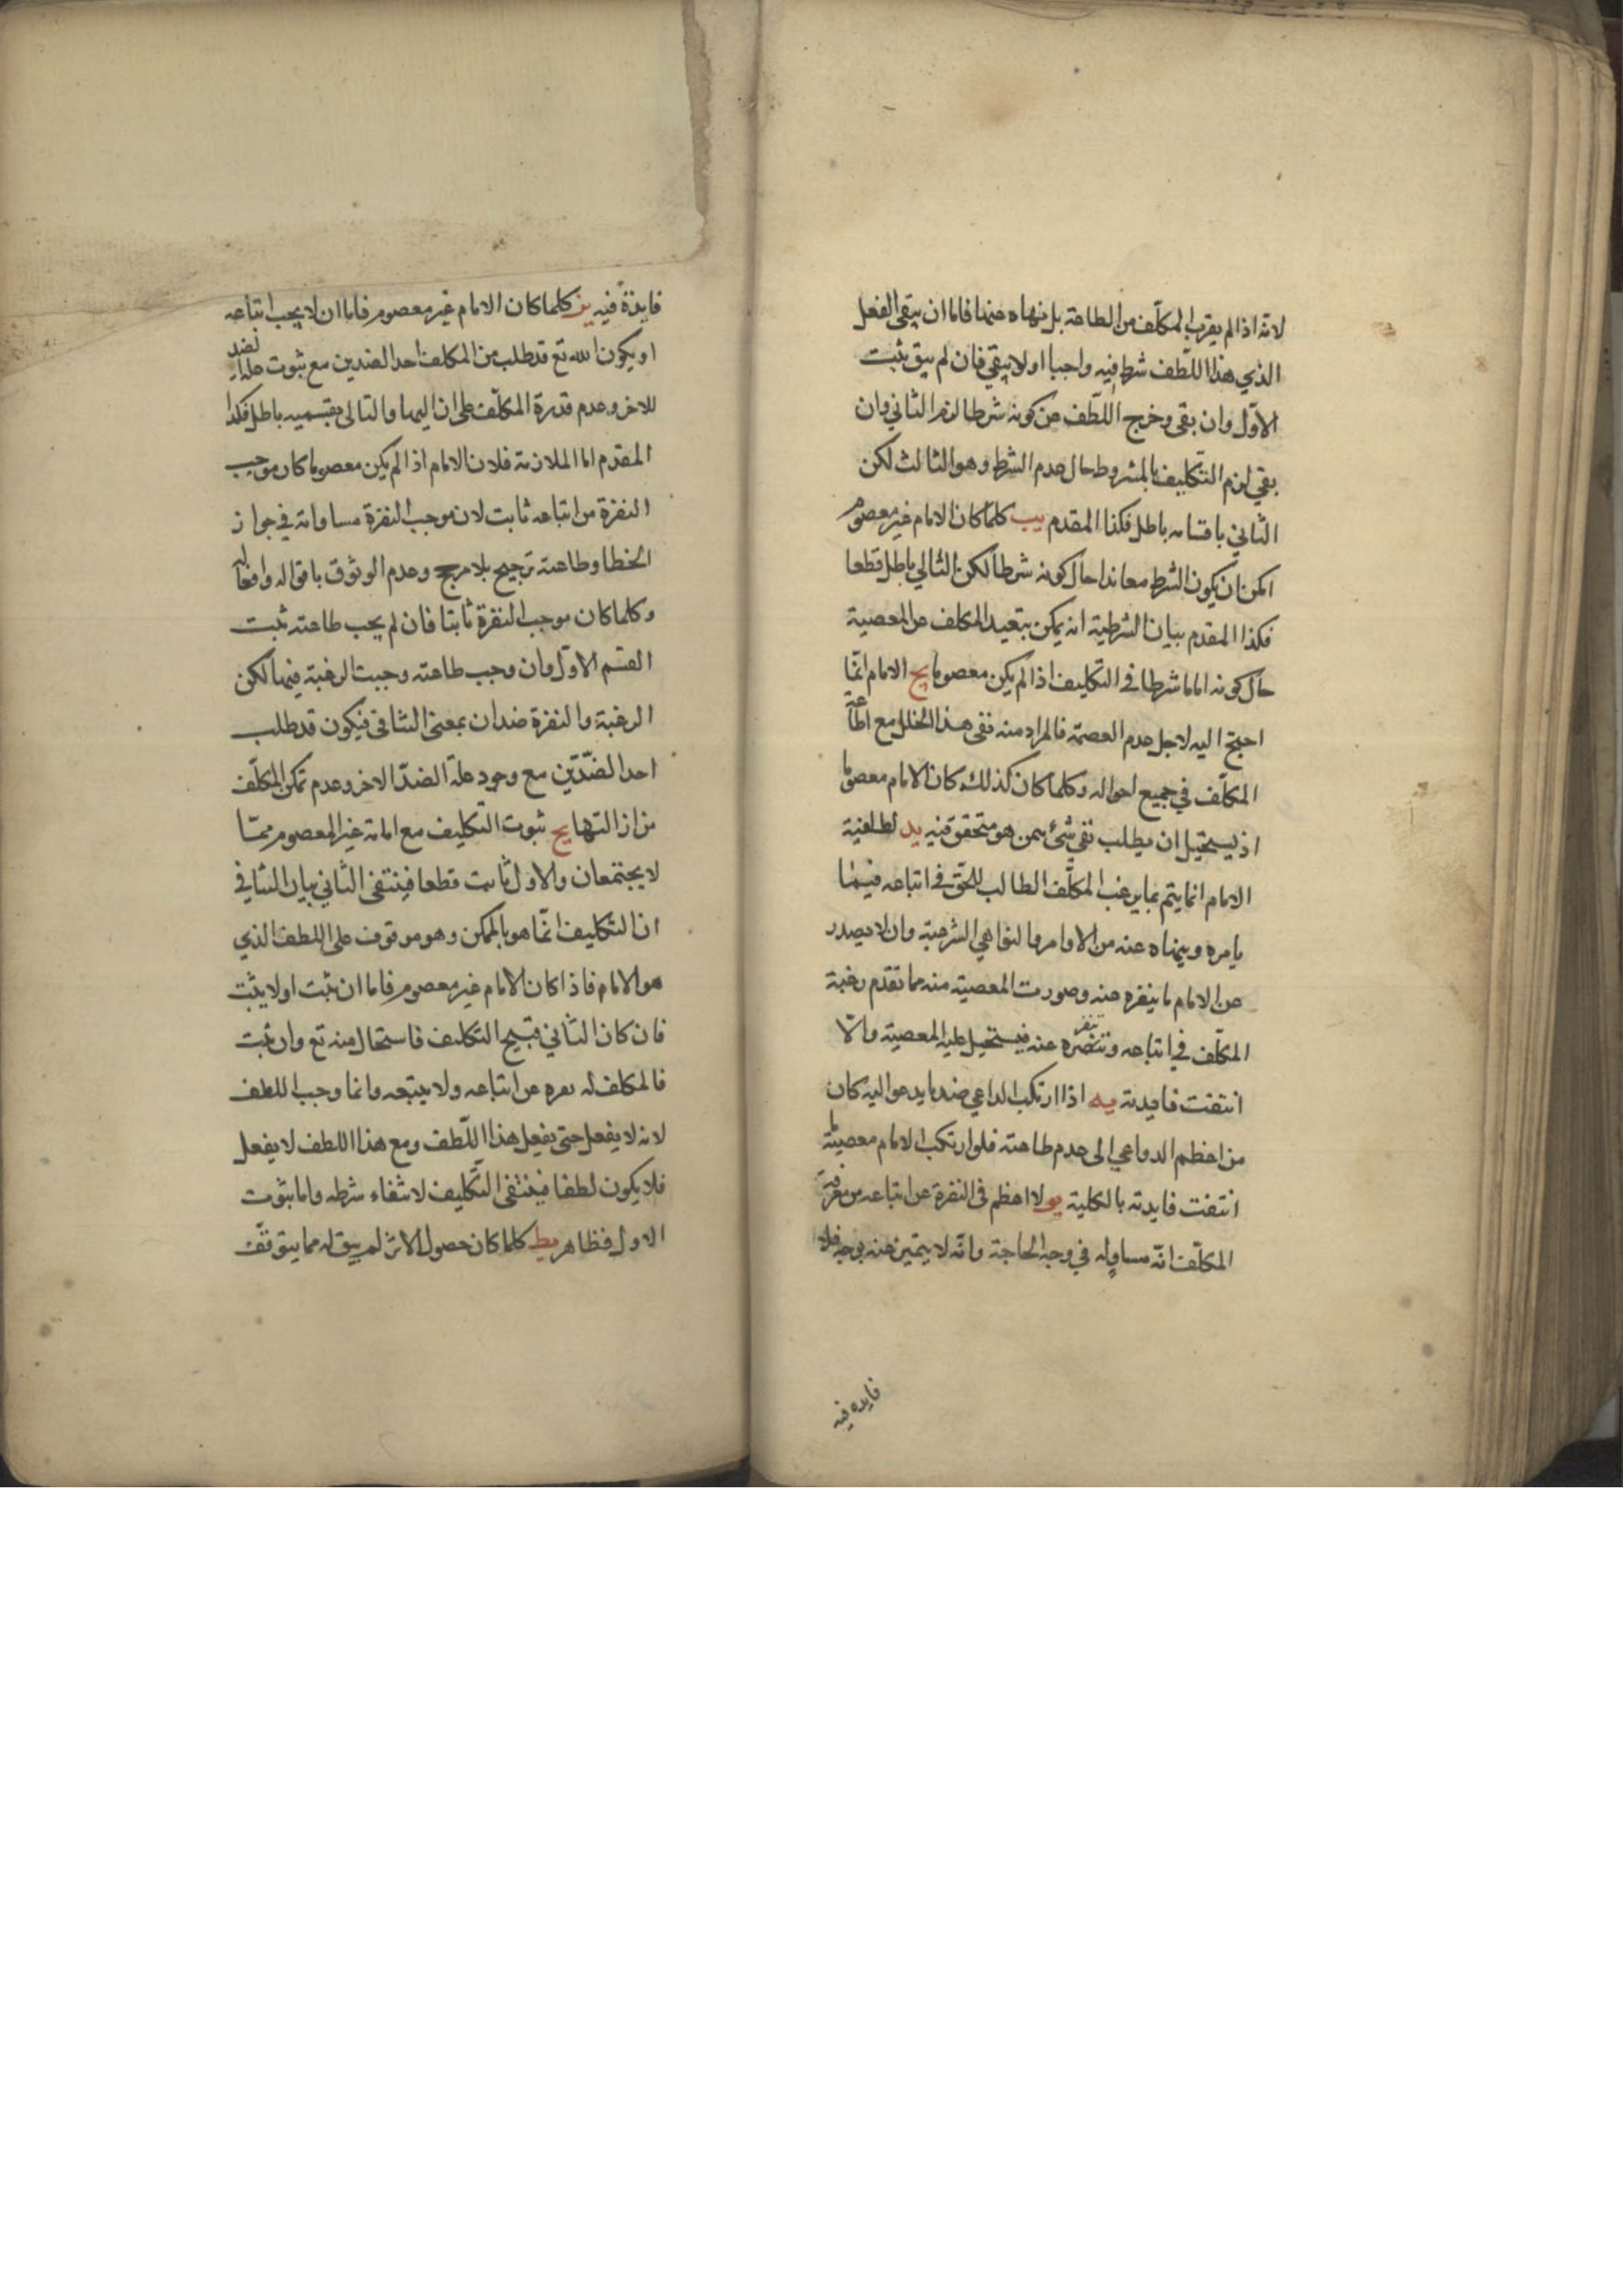 لانه اذا لم يقرب المكلّف من الطاعة بل نهاه عنها فاما ان يبقى الفعل
الذي هذا اللّطف شرط فيه واجبا او لا يبقى فان لم يبق ثبت
الاوّل وان بقى وخرج اللّطف عن كونه شرطا لزم الثاني وان
بقي لزم التكليف بالمشروط حال عدم الشرط وهو الثالث لكن
الثاني باقسامه باطل فكذا المقدم يب كلما كان الامام غير معصوم
امكن ان يكون الشرط معاندا حال كونه شرطا لكن التالي باطل قطعا
فكذا المقدم بيان الشرطية انه يمكن تبعيد المكلف عن المعصية
حال كونه اماما شرطا في التكليف اذا لم يكن معصوما يج الامام انّما
احتج اليه لاجل عدم العصمة فالمراد منه نفى هذا الخلل مع اطاعة
المكلّف في جميع احواله وكلما كان كذلك كان الامام معصوما
اذ يستحيل ان يطلب نفي شئ بمن هو متحقق فيه يد لطفية
الامام انما يتم بما يرغب المكلّف الطالب للحقّ في اتباعه فيما
يامره وينهاه عنه من الاوامر والنواهي الشرعية وان لا يصدر
عن الامام ما ينفره عنه وصدور المعصية منه مما تقدم رغبة
المكلّف في اتباعه وتنفره عنه فيستحيل عليه المعصية والّا
انتفت فايدته يه اذا ارتكب الداعي ضد ما يدعو اليه كان
من اعظم الدواعي الى عدم طاعته فلو ارتكب الامام معصية
انتفت فايدته بالكلية يو لا اعظم في النفرة عن اتباعه من معرفة
المكلّف انّه مساو له في وجه الحاجة وانّه لا يتميز عنه بوجه فلا
فايده فيه
فايدة فيه يز كلما كان الامام غير معصوم فاما ان لا يجب اتباعه
او يكون الله تع قد طلب من المكلف احد الضدين مع ثبوت علة الضد
للاخر وعدم قدرة المكلّف على ازاليها والتالى بقسميه باطل فكذا
المقدم اما الملازمة فلان الامام اذا لم يكن معصوما كان موجب
النفرة من اتباعه ثابت لان موجب النفرة مساواته في جواز
الخطا وطاعته ترجيح بلا مرجح وعدم الوثوق باقواله وافعاله
وكلما كان موجب النفرة ثابتا فان لم يجب طاعته ثبت
القسم الاوّل وان وجب طاعته وجبت الرغبة فيها لكن
الرغبة والنفرة ضدان بمعنى التنافى فيكون قد طلب
احد الضدّين مع وجود علة الضدّ الاخر وعدم تمكن المكلّف
من ازالتها يح ثبوت التكليف مع امامة غير المعصوم ممّا
لا يجتمعان والاول ثابت قطعا فينتفى الثاني بيان التنافي
ان التكليف انّما هو بالممكن وهو موقوف على اللطف الذي
هو الامام فاذا كان الامام غير معصوم فاما ان ثبت او لا يثبت
فان كان الثاني قبيح التكليف فاستحال منه تع وان ثبت
فالمكلف له نفره عن اتباعه ولا يتبعه وانما وجب اللطف
لانه لا يفعل حتى يفعل هذا اللّطف ومع هذا اللطف لا يفعل
فلا يكون لطفا فينتفى التكليف لانتفاء شرطه واما ثبوت
الاول فظاهر يط كلما كان حصول الاثر لم يبق له مما يتوقّف